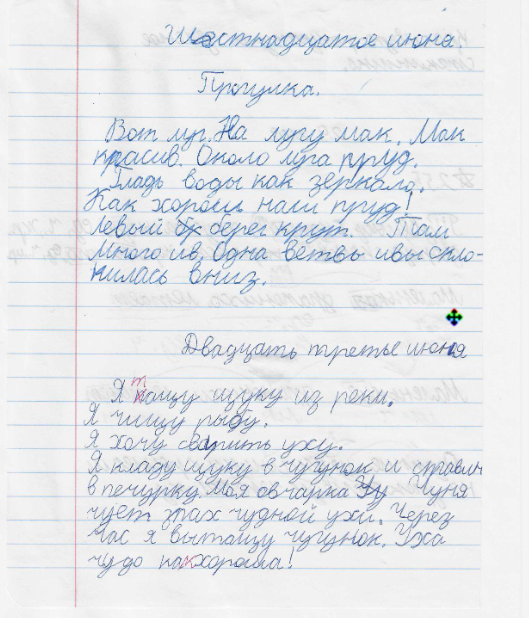 Шестнадцатое июня.
Прогулка.
Вот луг. На лугу мак. Мак
красив. Около луга пруд.
Гладь воды как зеркало.
Как хорош наш пруд!
Левый берег крут. Там
много ив. Одна ветвь ивы скло-
нилась вниз.
Двадцать третье июня
Я тащу щуку из реки.
Я чищу рыбу.
Я хочу сварить уху.
Я кладу щуку в чугунок и ставлю
в печурку. Моя овчарка Чуня
чует запах чудной ухи. Через
час я вытащу чугунок. Уха
чудо как хороша!